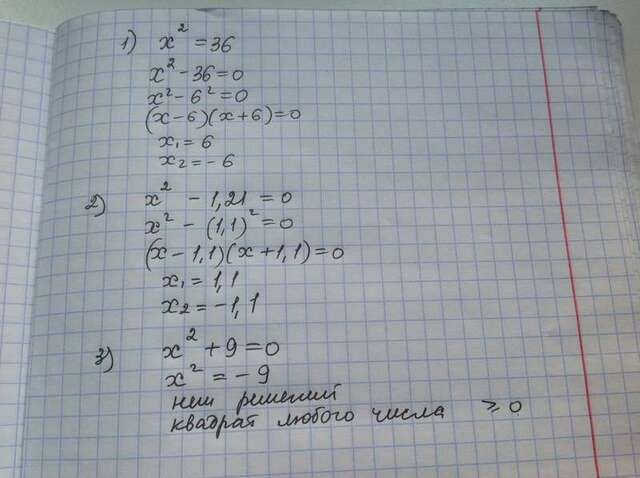 1) x² = 36
x² - 36 = 0
x² - 6² = 0
(x - 6)(x + 6) = 0
x₁ = 6
x₂ = - 6
2) x² - 1,21 = 0
x² - (1,1)² = 0
(x - 1,1)(x + 1,1) = 0
x₁ = 1,1
x₂ = -1,1
3) x² + 9 = 0
x² = - 9
нет решений
квадрат любого числа ≥ 0